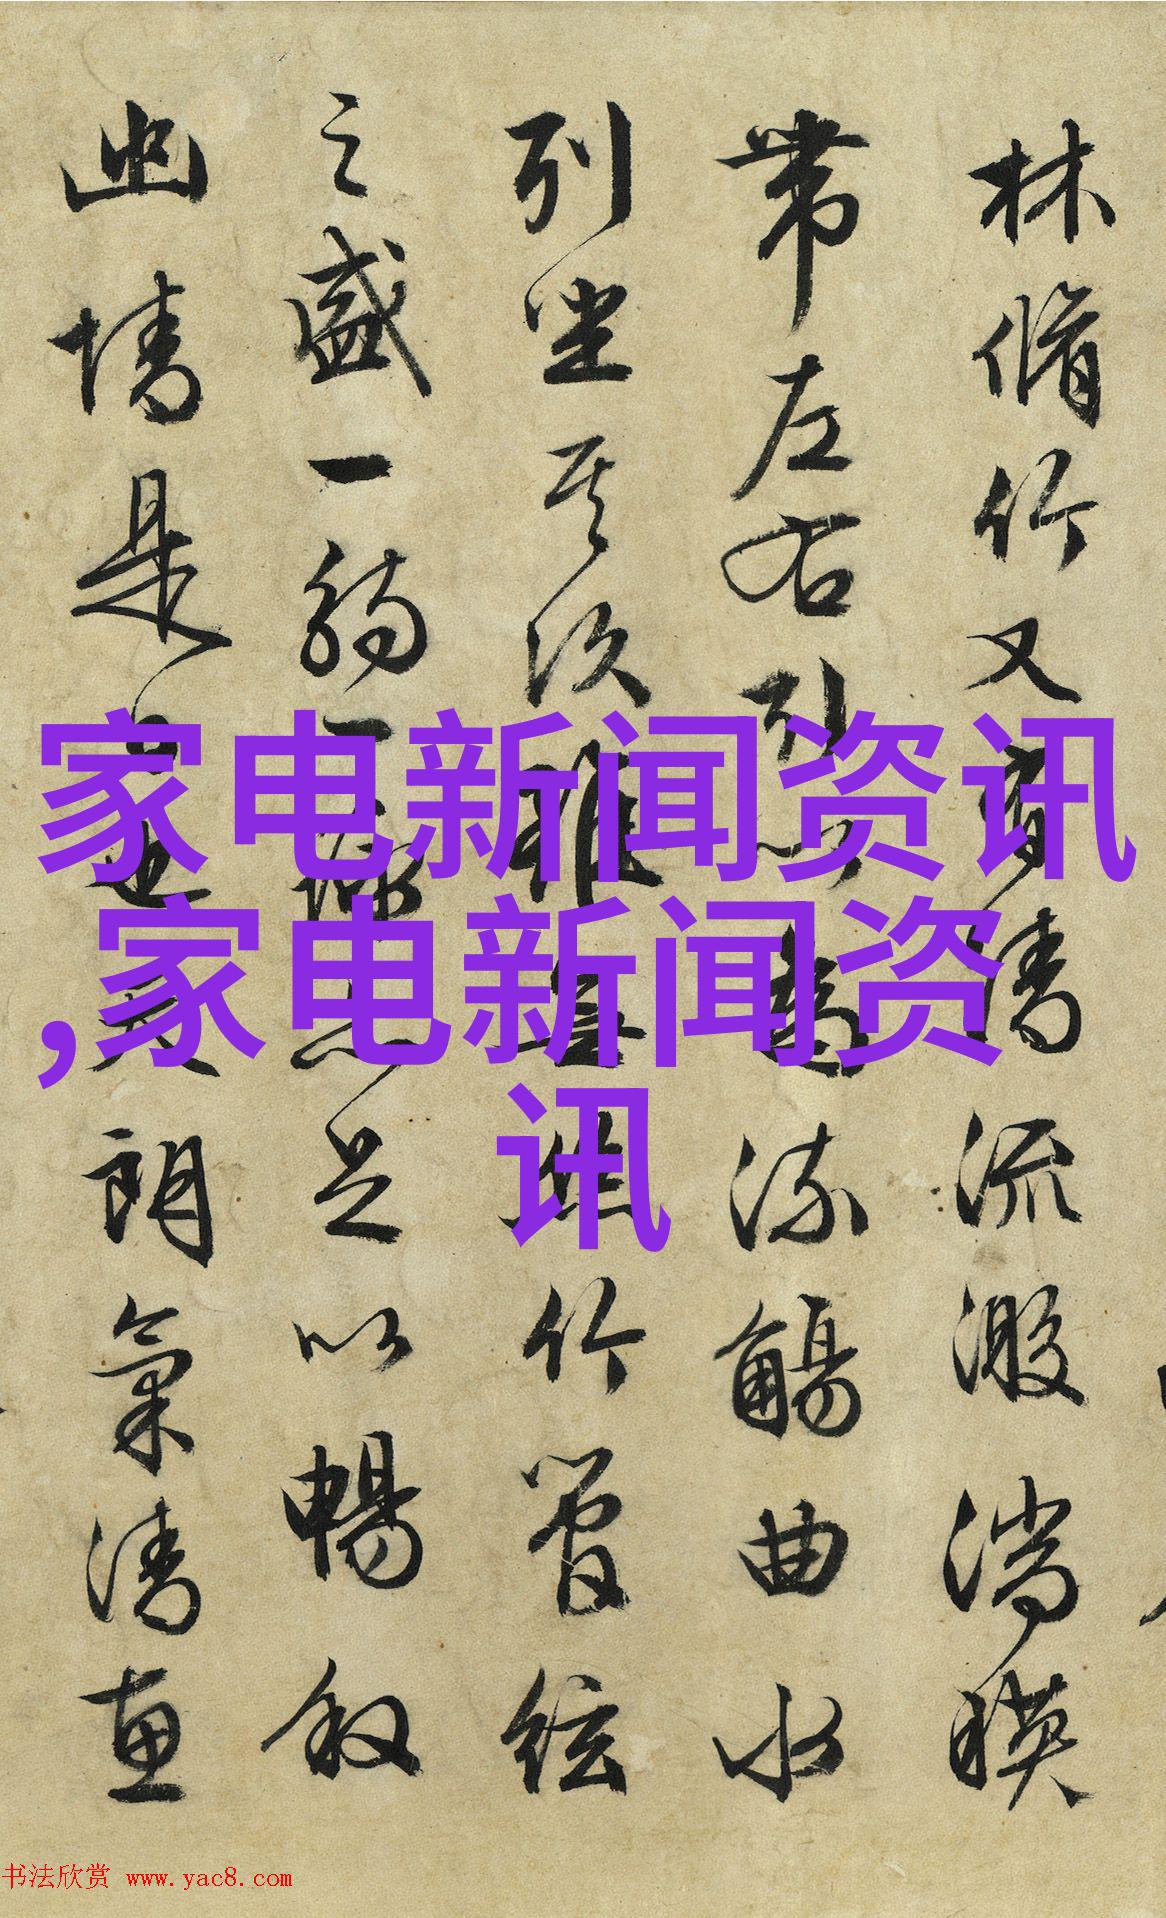 林脩竹又有清流激湍暎
帶左右引以為流觴曲水
列坐其次雖無絲竹管絃
之盛一觴一詠亦足以暢敘
幽情是日也天朗氣清惠
家电新闻资讯
,家电新闻资
讯
书法欣赏 www.yac8.com